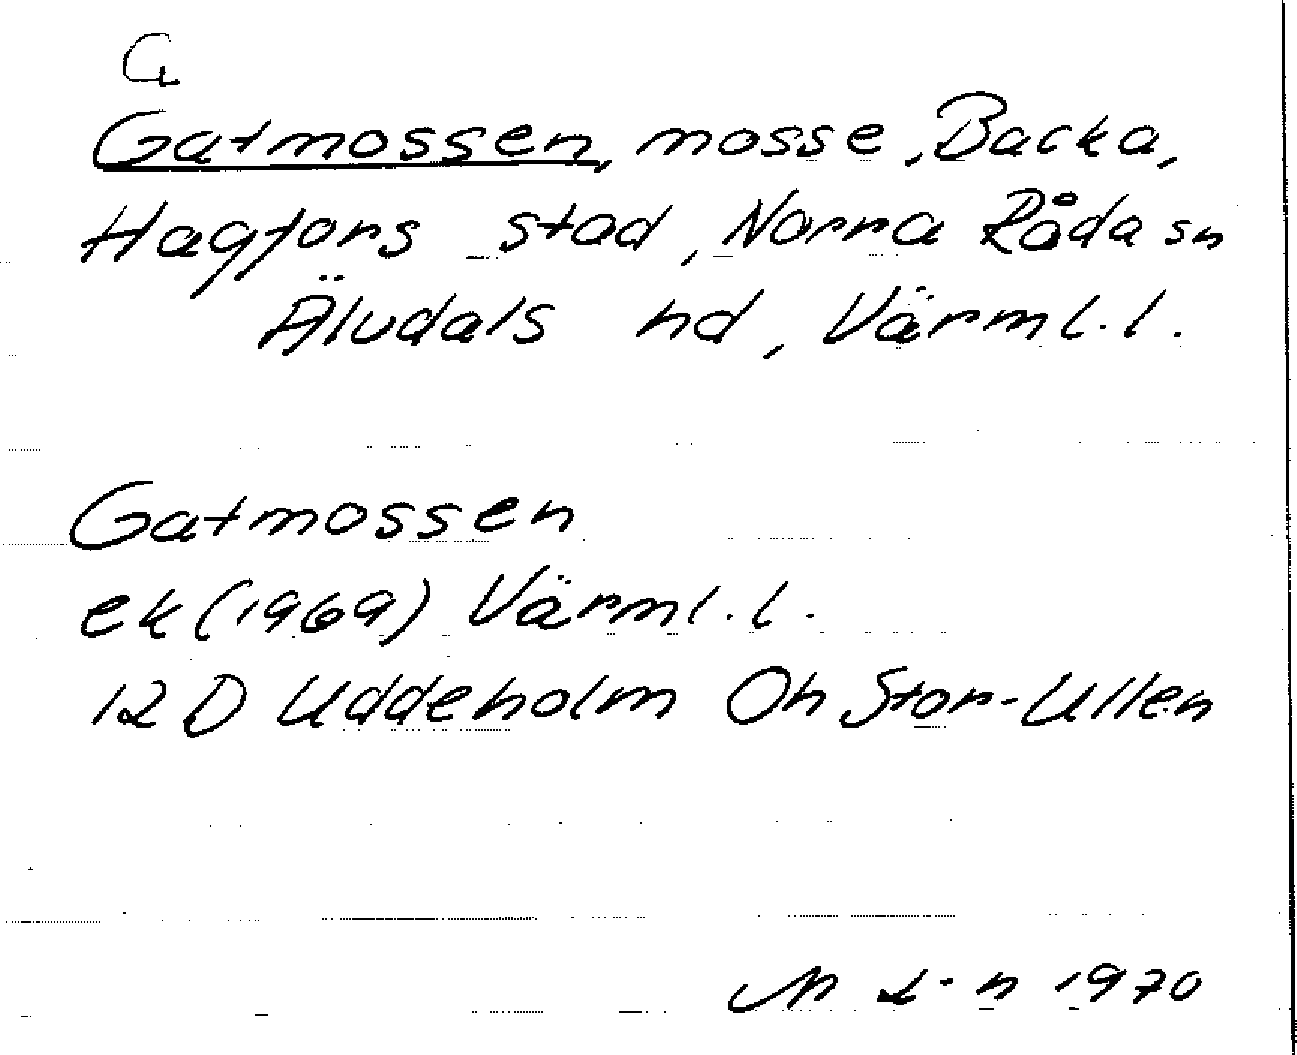 G
Gatmossen, mosse, Backa,
Hagfors stad, Norra Råda sn
Älvdals hd, Värml. l.
Gatmossen
ek (1969) Värml. l.
12 D Uddeholm Oh Stor-Ullen
1970